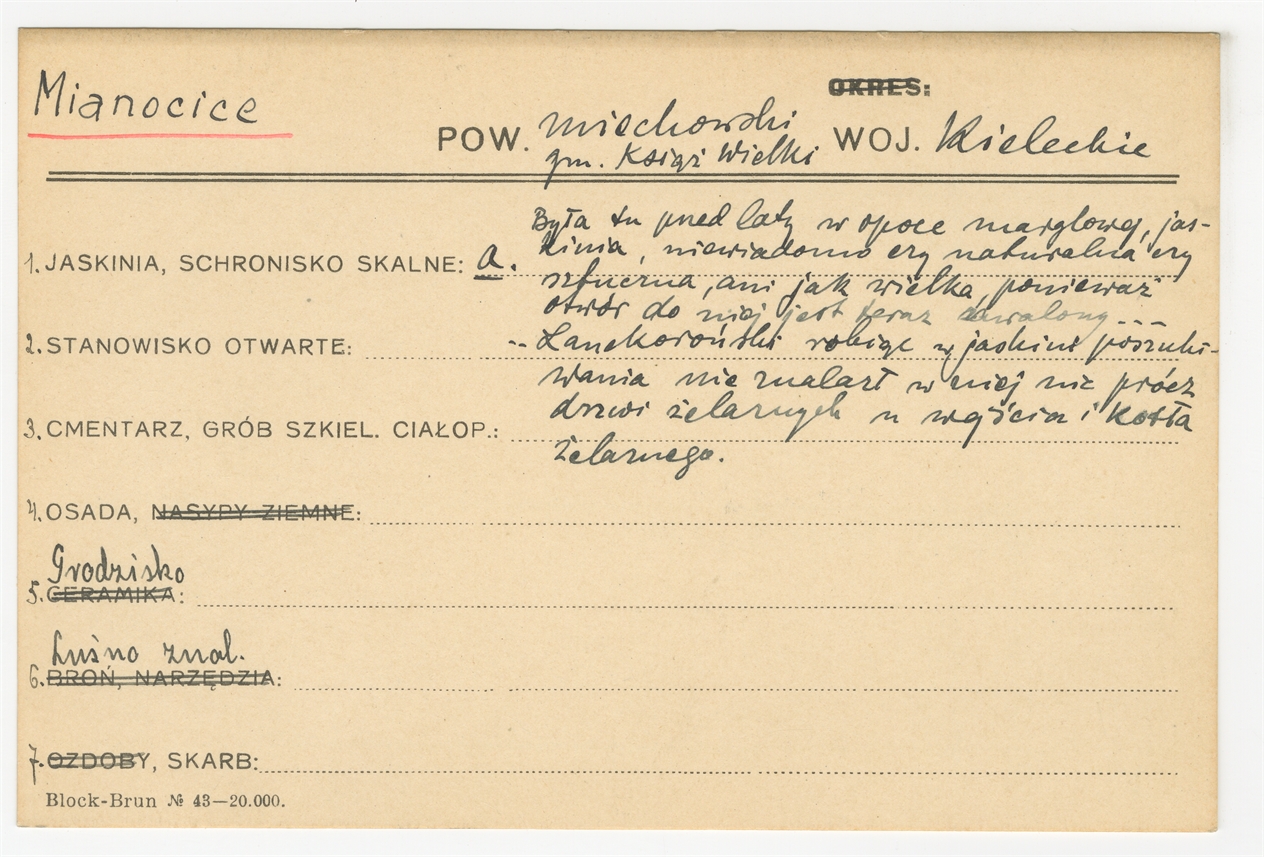 Mianocice
OKRES:
POW. miechowski WOJ. Kieleckie
gm. Książ Wielki
Była tu pned laty w opoce marglowej, jas-
kinia, niewiadomo czy naturalna czy
1. JASKINIA, SCHRONISKO SKALNE: a.
sztuczna, ani jak wielka, ponieważ
otwór do niej jest teraz zawalony...
2. STANOWISKO OTWARTE:
-- Lanckoroński robiąc w jaskini poszuki-
wania nie znalazł w niej nic prócz
drzwi żelaznych u wejścia i kotła
3. CMENTARZ, GRÓB SZKIEL. CIAŁOP.:
żelaznego.
4. OSADA, NASYPY ZIEMNE:
Grodzisko
5. CERAMIKA:
Luźno znal.
6. BROŃ, NARZĘDZIA:
7. OZDOBY, SKARB:
Block-Brun № 43—20.000.